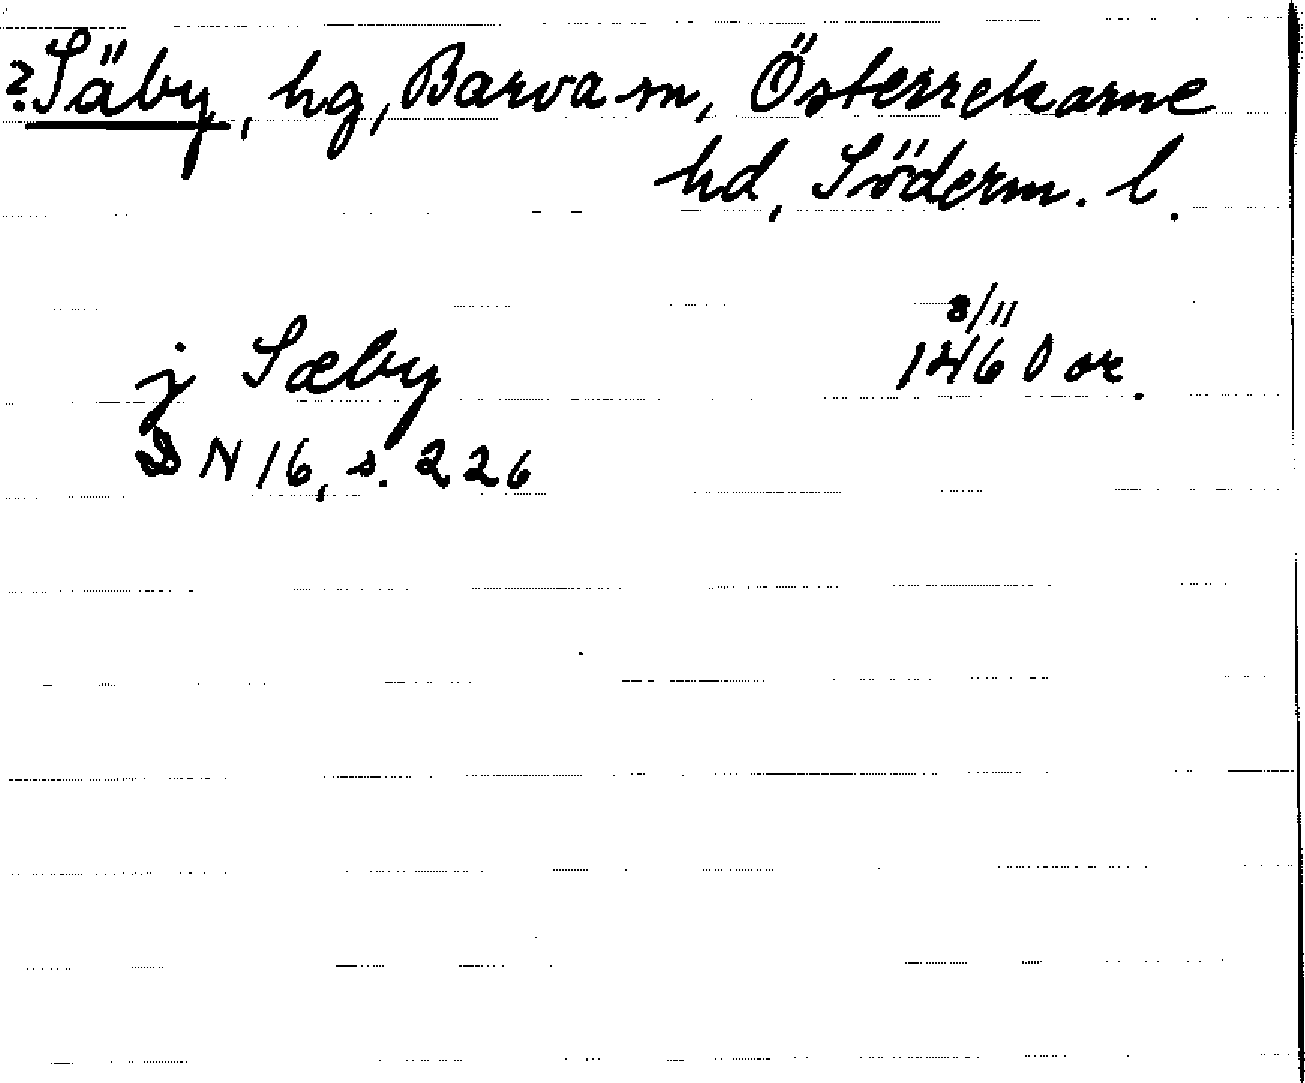 ?Säby, hg, Barva sn, Österrekarne
hd, Söderm. l.
j Sæby 8/11 1460 or.
DN 16, s. 226